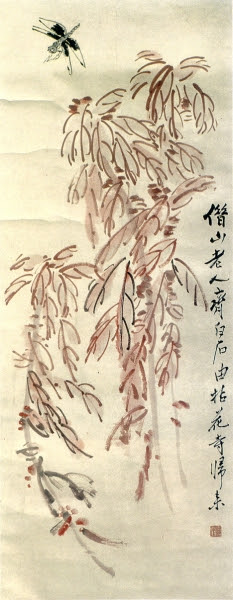 借山老人齊白石由拈花寺歸來